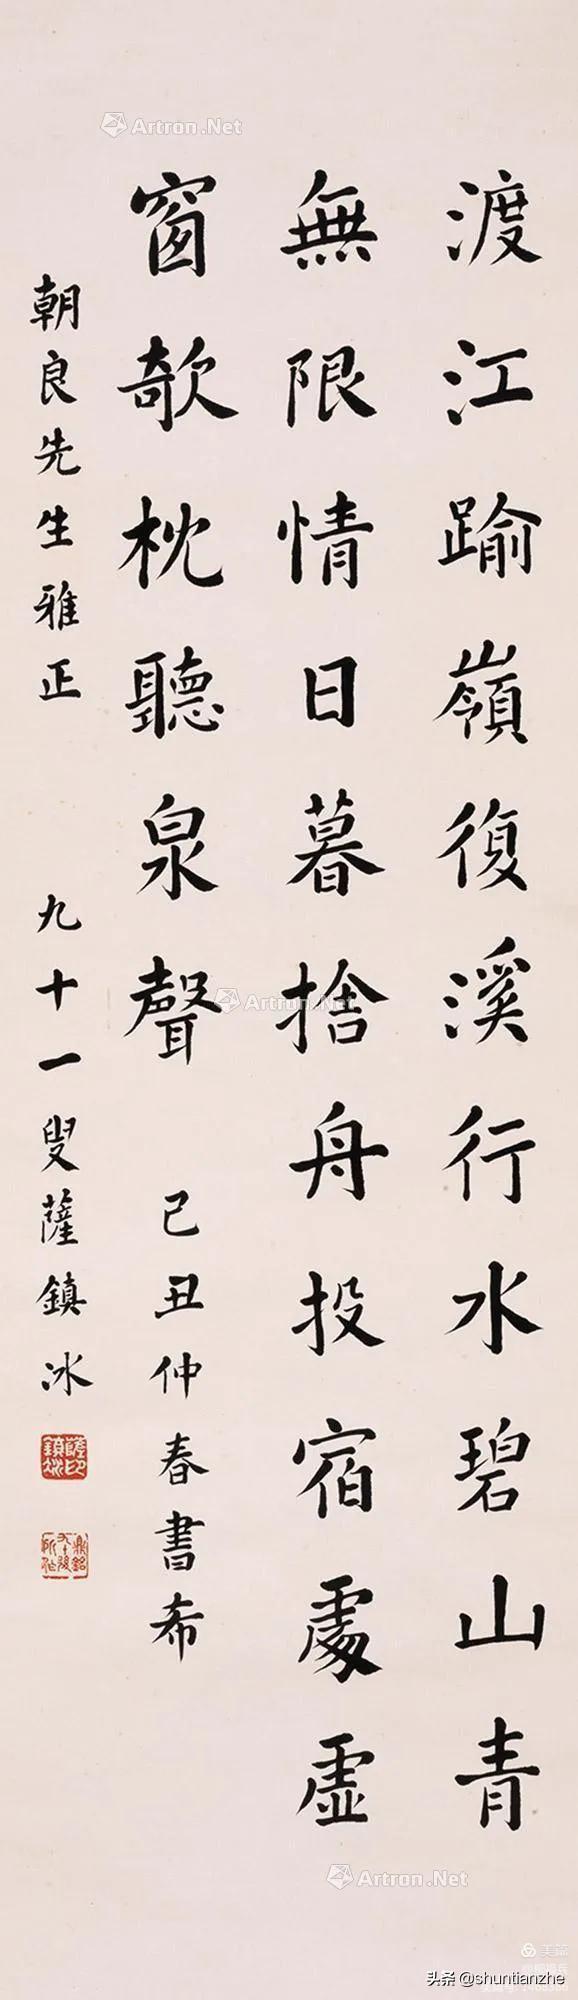 渡江踰嶺復溪行水碧山青
無限情日暮捨舟投宿處虛
窗欹枕聽泉聲
己丑仲春書希
朝良先生雅正
九十一叟薩鎮冰
薩鎮冰印
Artron.Net
Artron.Net
Artron.Net
美篇
头条 @shuntianzhe